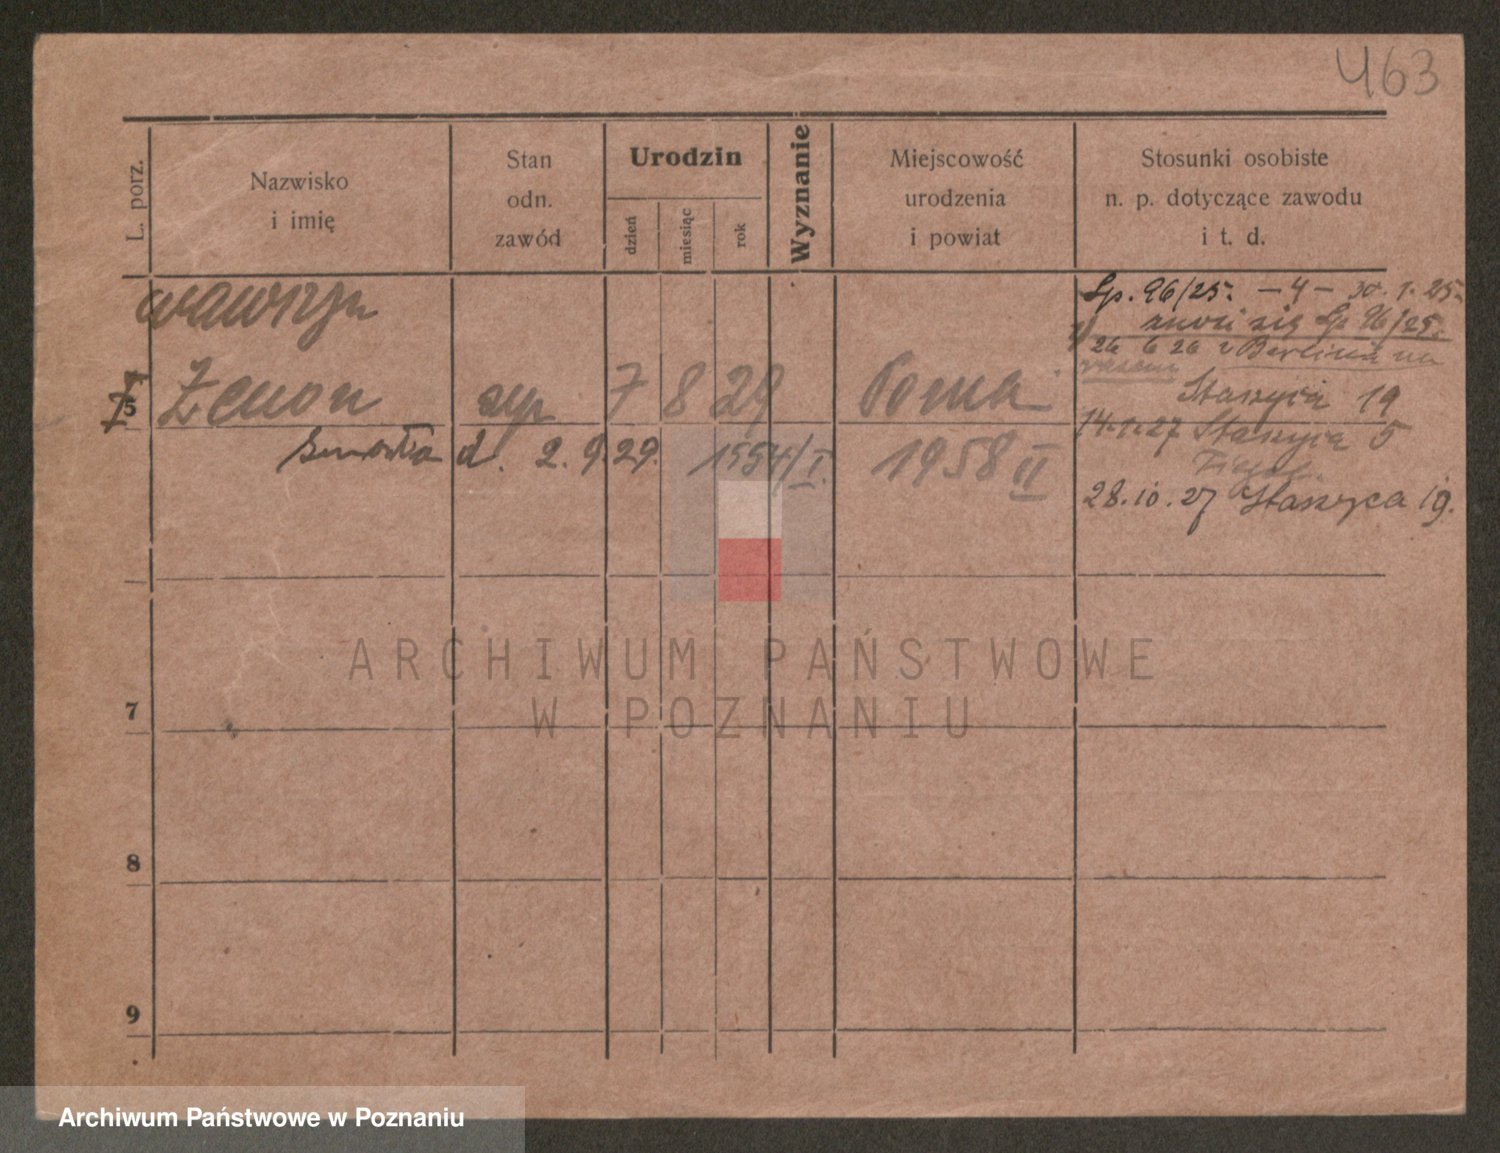 463
L. porz.
Nazwisko
i imię
Stan
odn.
zawód
Urodzin
dzień
miesiąc
rok
Wyznanie
Miejscowość
urodzenia
i powiat
Stosunki osobiste
n. p. dotyczące zawodu
i t. d.
wawrzyn
Sp. 96/25. – 4 – 30. 1. 25.
znosi się Sp 96/25.
26 6 26 z Berlina na
Staszyca 19
5
Zenon syn 7 8 29 Pozna
14.1.27 Staszyca 5
zmarła d. 2. 9. 29. 1554/I. 1958 II
28. 10. 27 Staszyca 19.
ARCHIWUM PAŃSTWOWE
W POZNANIU
7
8
9
Archiwum Państwowe w Poznaniu